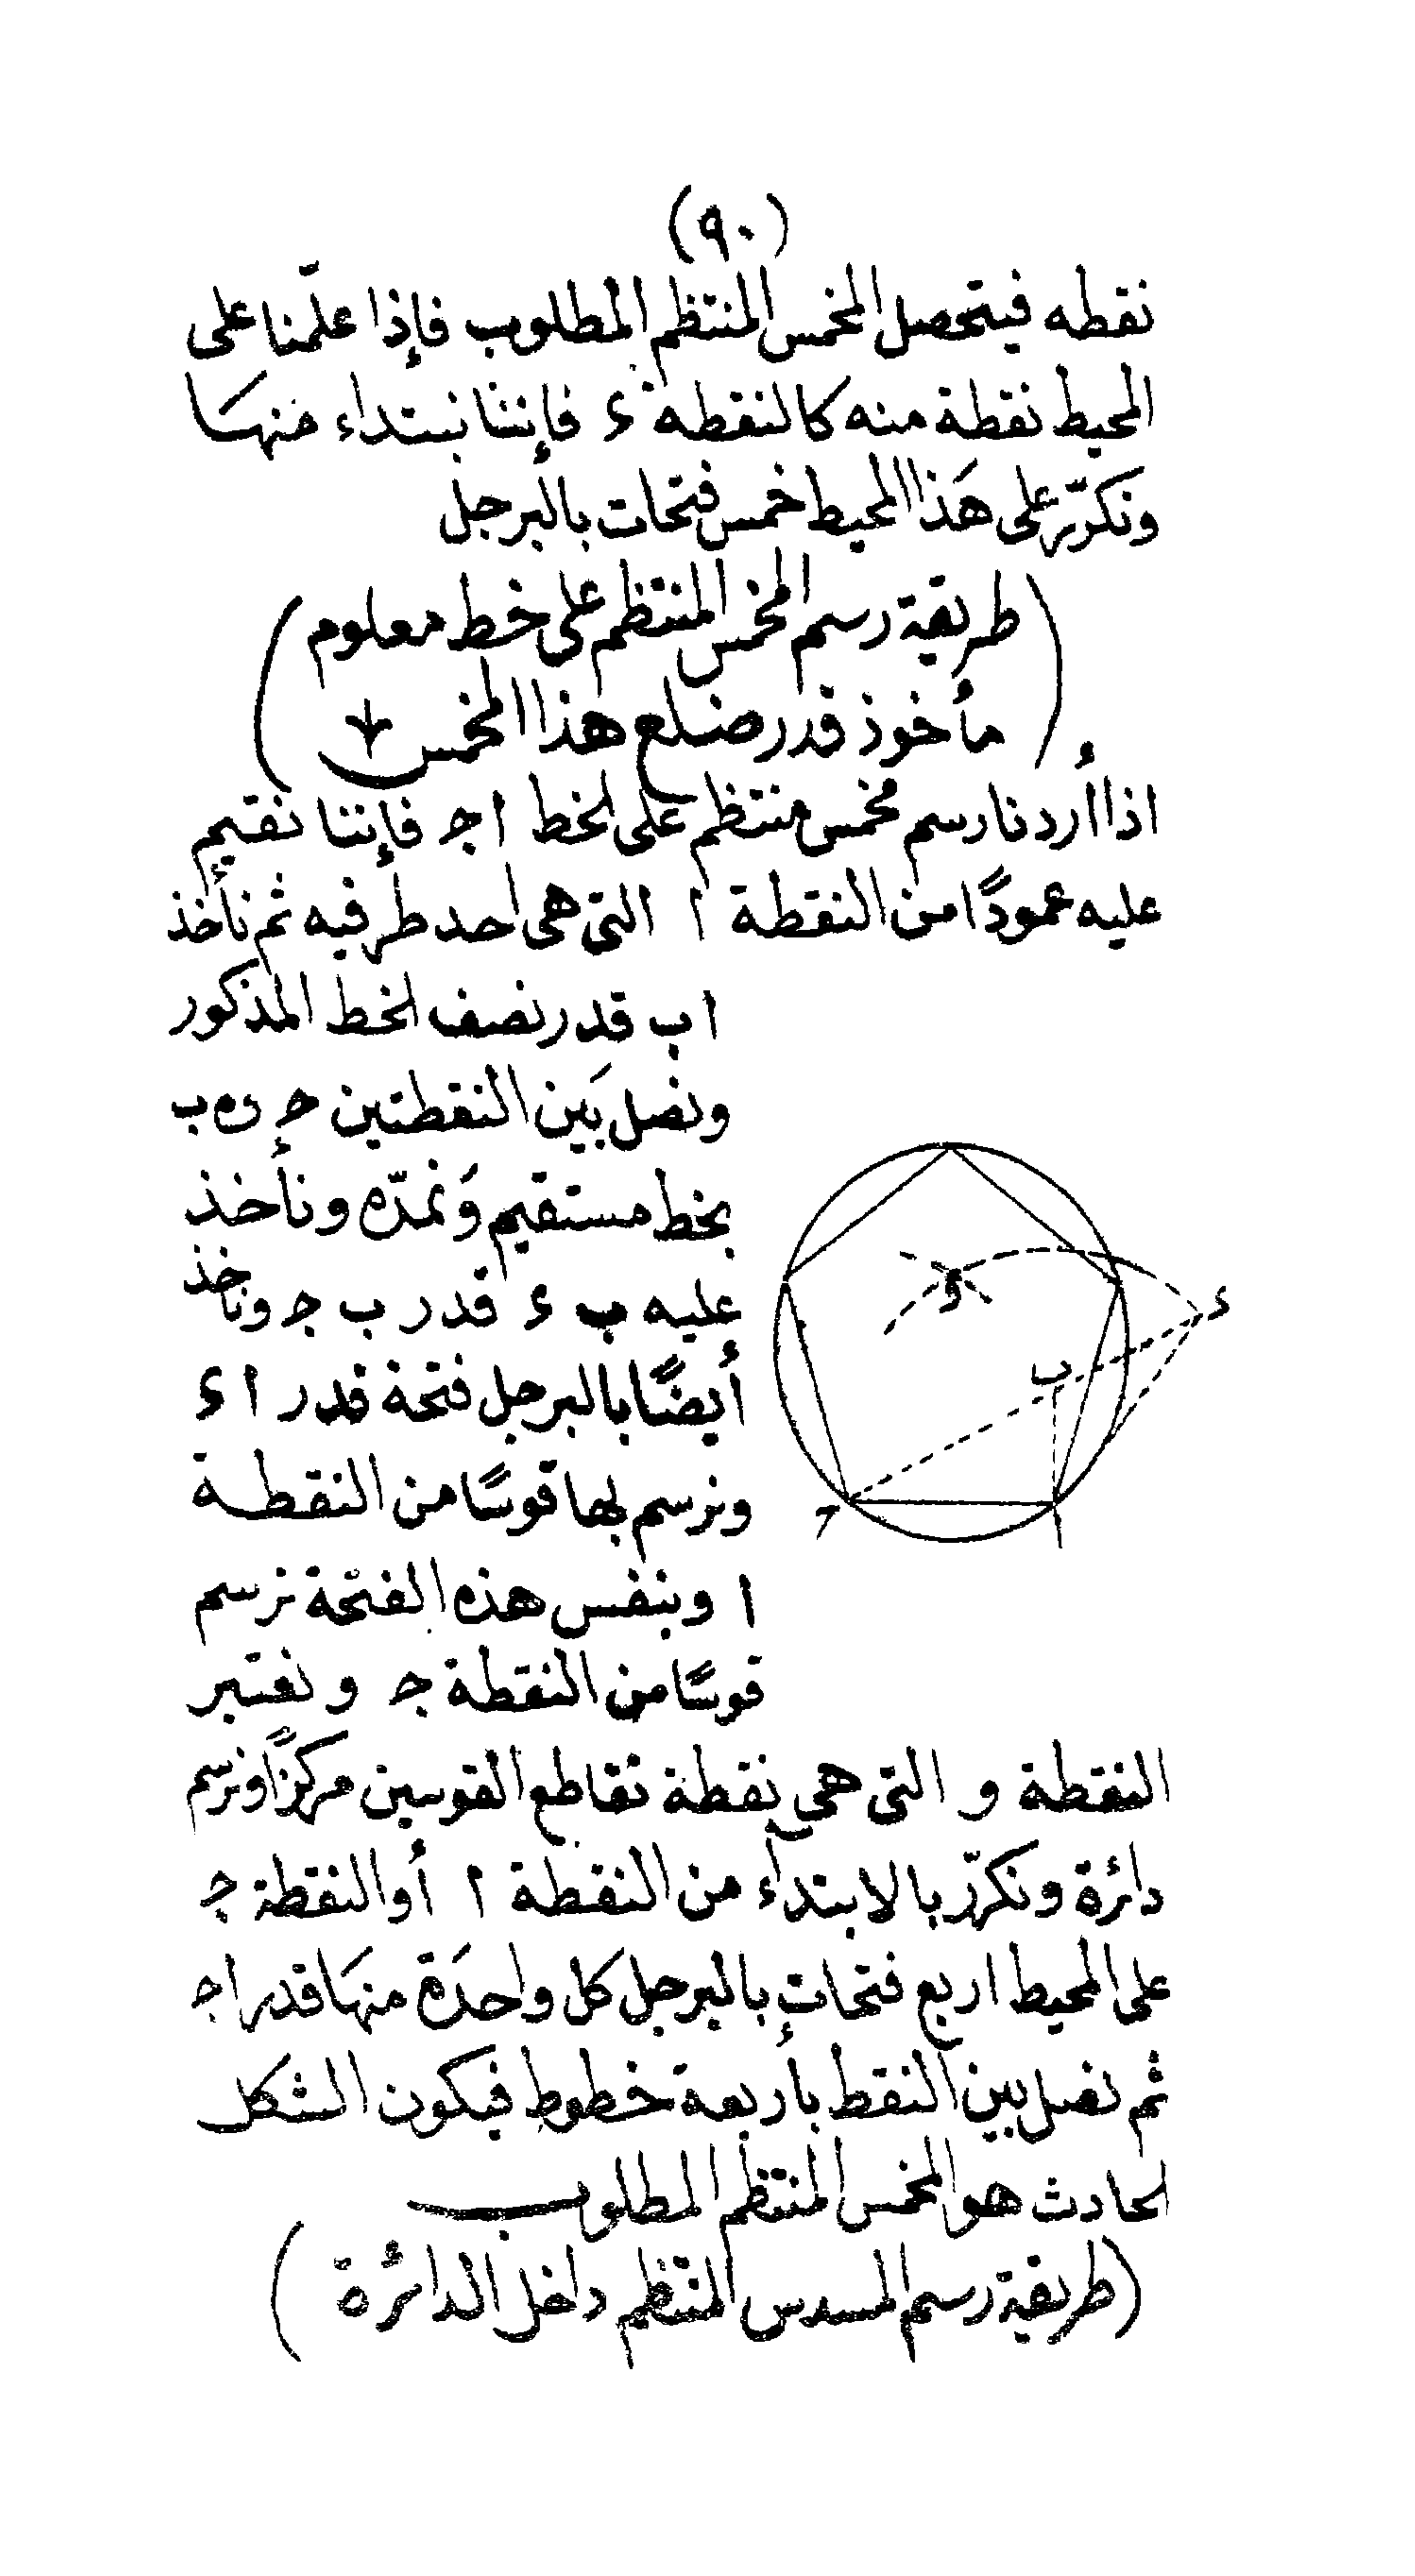 (٩٠)
نقطه فيتحصل المخمس المنتظم المطلوب فإذا علّمنا على
المحيط نقطة منه كالنقطة ء فإننا نبتداء منها
ونكرّر على هَذا المحيط خمس فتحات بالبرجل
(طريقة رسم المخمس المنتظم على خط معلوم
مأخوذ قدر ضلع هذا المخمس)
اذا أردنا رسم مخمس منتظم على الخط ا ج فإننا نقيم
عليه عمودًا من النقطة ا التى هى احد طرفيه ثم نأخذ
ا ب قدر نصف الخط المذكور
ونصل بَين النقطتين ج و ب
بخط مستقيم وَنمدّه ونأخذ
عليه ب ء قدر ب ج وناخذ
أيضًا بالبرجل فتحة قدر ا ء
ونرسم بها قوسًا من النقطة
ا وبنفس هذه الفتحة نرسم
قوسًا من النقطة ج ونعتبر
النقطة و التى هى نقطة تقاطع القوسين مركزًا ونرسم
دائرة ونكرّر بالابتداء من النقطة ا أو النقطة ج
على المحيط اربع فتحات بالبرجل كل واحدَة منهَا قدر ا ج
ثم نصل بين النقط بأربعة خطوط فيكون الشكل
الحادث هو المخمس المنتظم المطلوب
(طريقة رسم المسدس المنتظم داخل الدائرة)
و
ء
ب
ج
ا